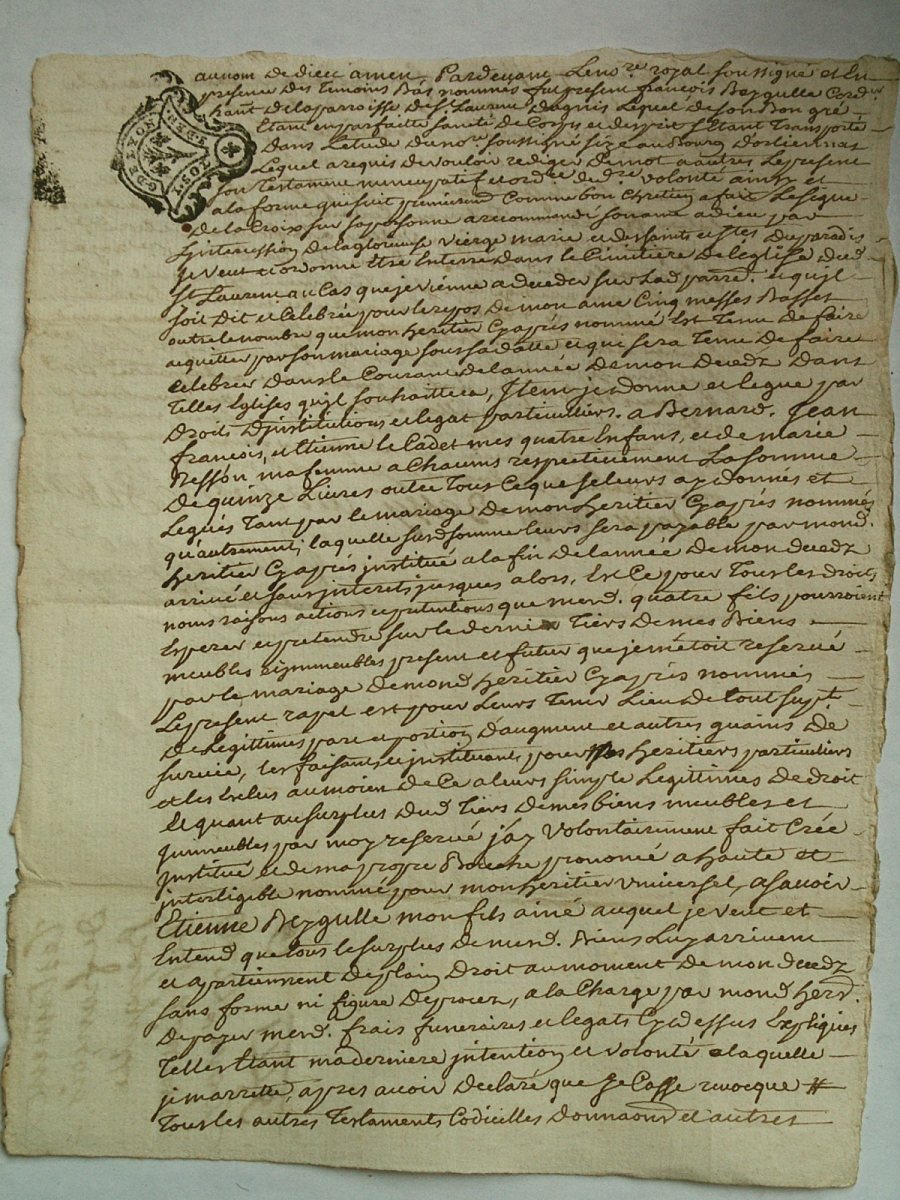 G. DE LYON
au nom de dieu amen, Pardevant Le no.re royal soussigné et En
presence des Temoins Bas nommés fut present françois Beygulle
habitant dela parroisse de St. Laurent dagnis Lequel de son Bon gré
Etant en parfaitte santé de Corps et desprit s'Etant Transporté
dans L'etude du no.re soussigné size au Bourg dorliennas
Lequel a requis de vouloir rediger de mot a autres Le present
son Testament nuncupatif et ord.re de d.re volonté ainsy et
a la forme que suit premierem.t Comme bon Chretien a fait Le signe
de la Croix sur sa personne a recommandé son ame a dieu par
L'intercession de la glorieuse vierge marie et des saints et s.tes du paradis
Je Veut et ordonne Etre Enterré dans le Cimitiere de l'église dud.
St. Laurent au Cas que je vienne a deceder sur Lad. parr.e et quil
soit dit et Celebrée pour le repos de mon ame Cinq messes Basses
outre le nombre que mon heritier Cy apres nommé Est Tenu de faire
acquitter par son mariage sous sa datte et qui sera Tenu de faire
Celebrer dans le Courant de l'année de mon decedz dans
Telles Eglises quil souhaittera, Item je donne et legue par
droits d'institutions et legat particuliers. a Bernard, Jean
françois, et Etienne le Cadet mes quatre Enfans, et de marie
Besson, ma femme a Chacuns respectivement La somme
de quinze Livres outre Tous Ce que je leurs ay donnés et
Legués Tant par le mariage de mon heritier Cy aprés nommés
qu'autrement, laquelle susd. somme leurs sera payable par mond.
heritier Cy aprés institué a la fin de l'année de mon decedz
arrivé et sans interets jusques alors, Est Ce pour Tous les droits
noms raisons actions et pretentions que mesd. quatre fils pourroient
Esperer et pretendre sur le dernier Tiers de mes Biens
meubles et immeubles present et futur que je m'etoit reservé
par le mariage de mond. heritier Cy aprés nommés
Le present est pour Leurs Tenir Lieu de tout supl.t
de Legittimes part et portion d'augment et autres guains de
survie, les faisants et instituants pour mes heritiers particuliers
et les Exclus au moien de Ce a leurs simple Legittimes de droit
Et quant au surplus dud. Tiers de mes biens meubles et
immeubles par moy reservé j'ay Volontairement fait Créé
institué et de ma propre Bouche prononcé a haute et
intelligible nommé pour mon heritier universel, a savoir
Etienne Beygulle mon fils ainé auquel je veut et
Entend que tous le surplus de mesd. Biens Luy arrivent
et apartiennent de plain droit au moment de mon decedz
sans forme ni figure de procez, a la Charge par mond. her.
de payer mesd. frais funeraires et legats Cy dessus Expliqués
Telles Etant ma derniere intention et volonté a laquelle
je marrette, apres avoir declaré que Je Casse revocque #
Tous les autres Testaments Codicilles donnaons et autres